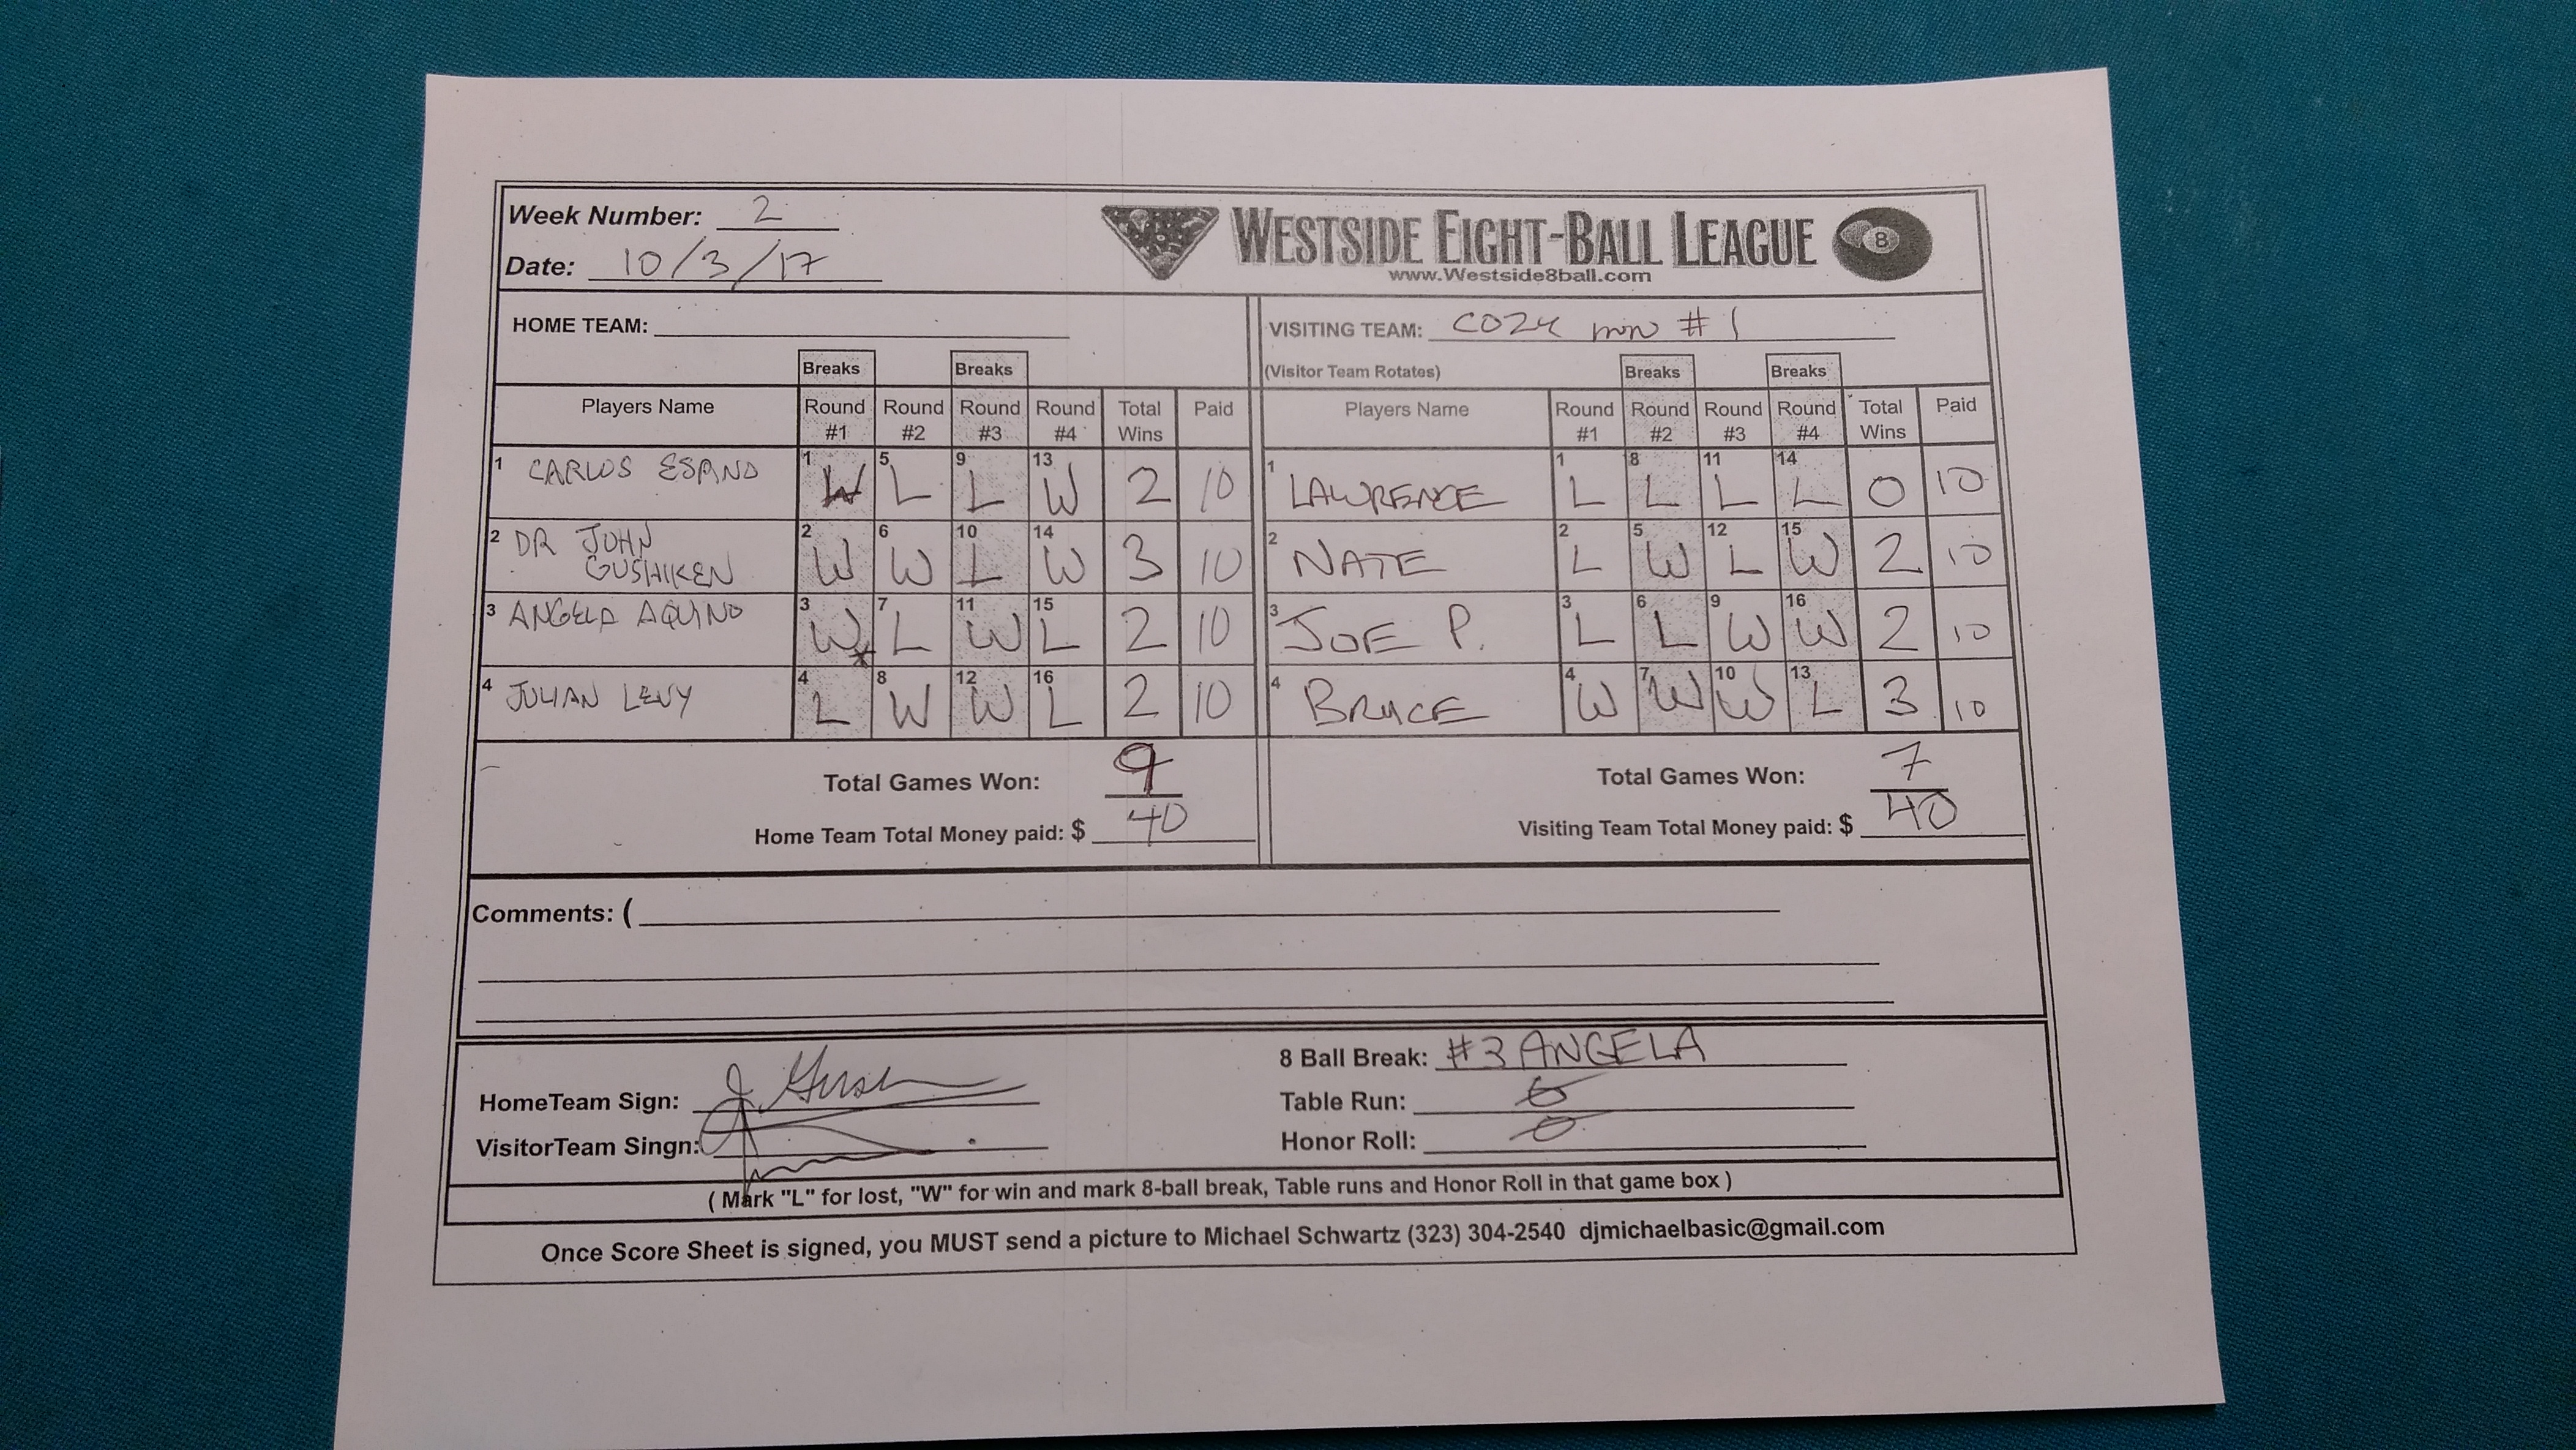 Week Number: 2
Date: 10/3/17
WESTSIDE EIGHT-BALL LEAGUE 8
www.Westside8ball.com
HOME TEAM:
VISITING TEAM: COZY INN #1
Breaks Breaks (Visitor Team Rotates) Breaks Breaks
Players Name Round #1 Round #2 Round #3 Round #4 Total Wins Paid Players Name Round #1 Round #2 Round #3 Round #4 Total Wins Paid
1 CARLOS 1 W 5 L 9 L 13 W 2 10 1 LAWRENCE 1 L 8 L 11 L 14 L 0 10
2 DR JOHN GUSHIKEN 2 W 6 W 10 L 14 W 3 10 2 NATE 2 L 5 W 12 L 15 W 2 10
3 ANGELA AQUINO 3 W* 7 L 11 W 15 L 2 10 3 JOE P. 3 L 6 L 9 W 16 W 2 10
4 JULIAN LEVY 4 L 8 W 12 W 16 L 2 10 4 BRUCE 4 W 7 W 10 W 13 L 3 10
Total Games Won: 9 Total Games Won: 7
Home Team Total Money paid: $ 40 Visiting Team Total Money paid: $ 40
Comments: (
8 Ball Break: #3 ANGELA
HomeTeam Sign:
Table Run: 0
VisitorTeam Singn:
Honor Roll: 0
( Mark "L" for lost, "W" for win and mark 8-ball break, Table runs and Honor Roll in that game box )
Once Score Sheet is signed, you MUST send a picture to Michael Schwartz (323) 304-2540 djmichaelbasic@gmail.com